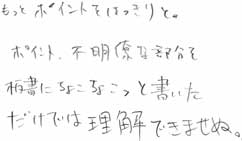 もっとポイントをはっきりと。
ポイント、不明僚な部分を
板書にちょこちょこっと書いた
だけでは理解できませぬ。